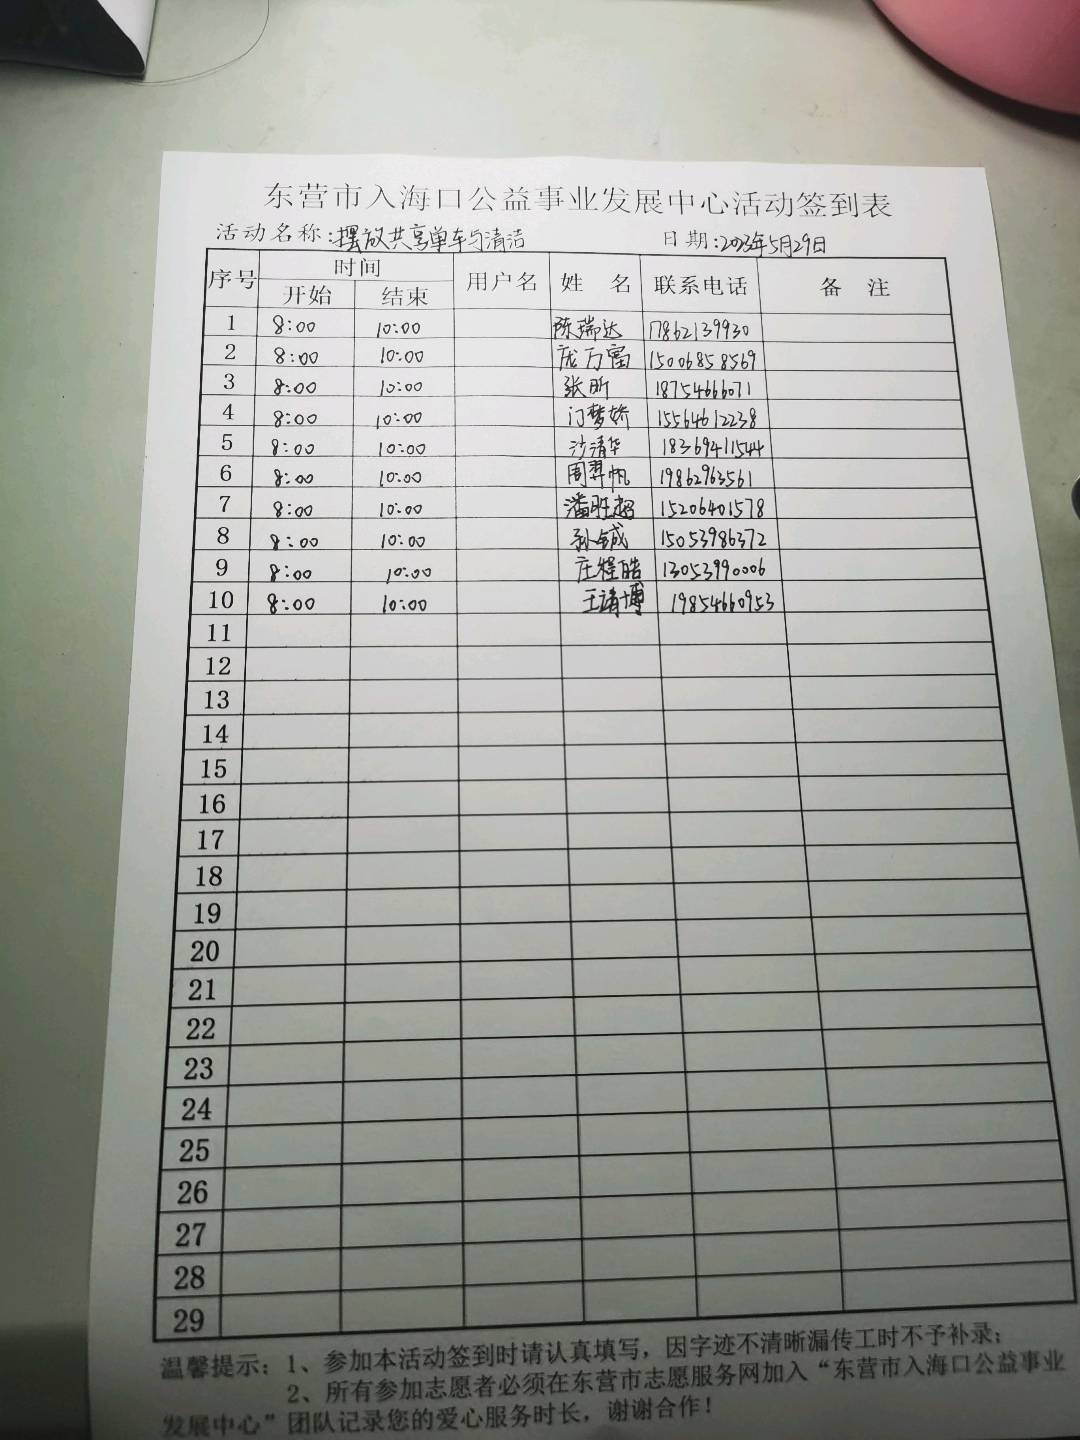 东营市入海口公益事业发展中心活动签到表
活动名称:摆放共享单车与清洁 日期:2023年5月29日
序号 时间 用户名 姓 名 联系电话 备 注
开始 结束
1 8:00 10:00 陈瑞达 17862139930
2 8:00 10:00 庞万富 15006858569
3 8:00 10:00 张昕 18754666071
4 8:00 10:00 门梦娇 15564612238
5 8:00 10:00 沙清华 18369411544
6 8:00 10:00 周羿帆 19862963561
7 8:00 10:00 潘胜超 15206401578
8 8:00 10:00 孙铖 15053986372
9 8:00 10:00 庄程皓 13053990006
10 8:00 10:00 王靖博 19854660953
11
12
13
14
15
16
17
18
19
20
21
22
23
24
25
26
27
28
29
温馨提示: 1、参加本活动签到时请认真填写，因字迹不清晰漏传工时不予补录；
2、所有参加志愿者必须在东营市志愿服务网加入“东营市入海口公益事业
发展中心”团队记录您的爱心服务时长，谢谢合作！